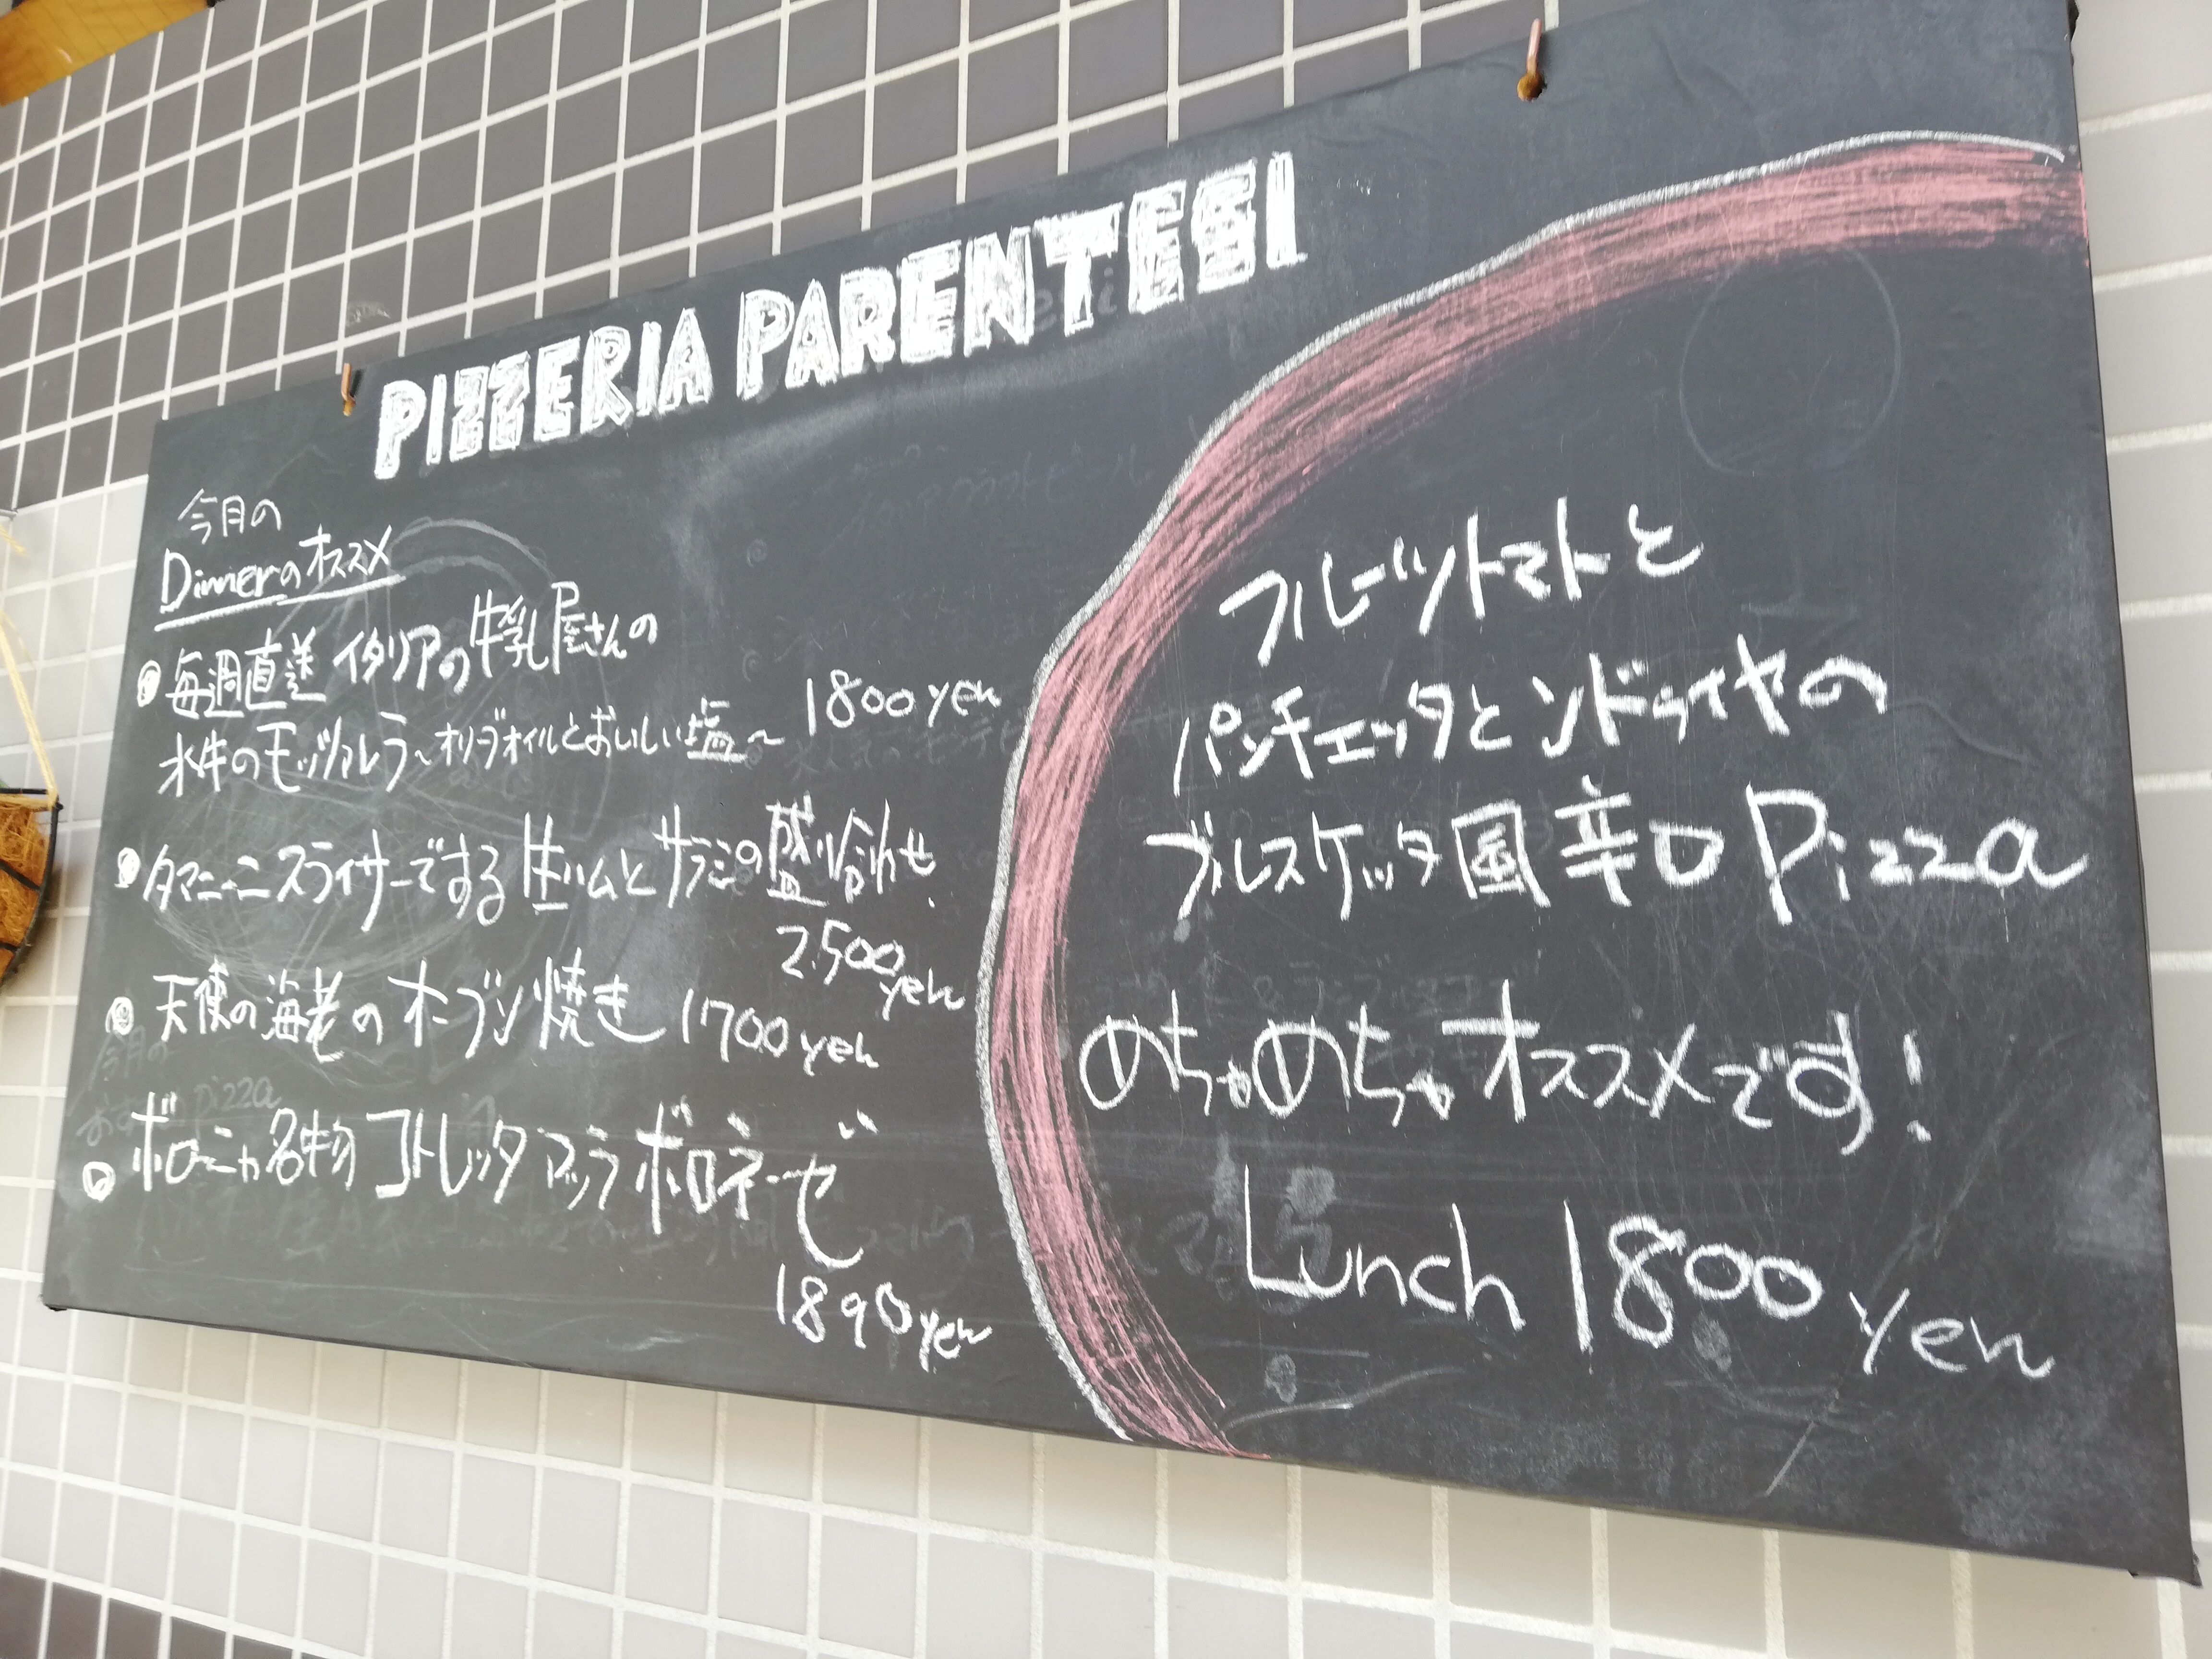 PIZZERIA PARENTESI
今月の
Dinnerのオススメ
毎週直送 イタリアの牛乳屋さんの
水牛のモッツァレラ〜オリーブオイルとおいしい塩〜 1800yen
タマニーニスライサーでする 生ハムとサラミの盛り合わせ
2.500yen
天使の海老のオーブン焼き 1700yen
ボローニャ名物 コトレッタアッラボロネーゼ
1890yen
フルーツトマトと
パンチェッタとンドゥイヤの
ブルスケッタ風辛口Pizza
めちゃめちゃオススメです!
Lunch 1800yen